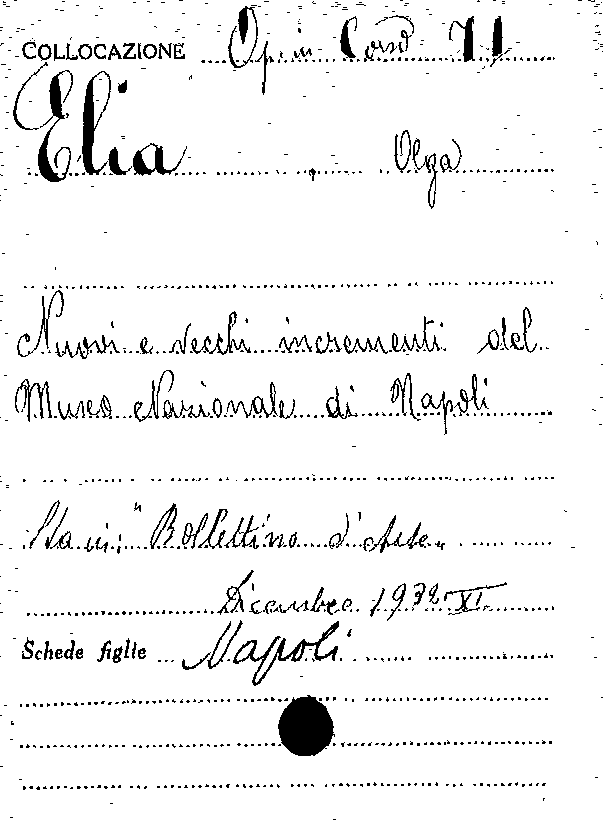 COLLOCAZIONE Op. in Cons 71
Elia, Olga
Nuovi e vecchi incrementi del
Museo Nazionale di Napoli
Sta in: "Bollettino d'Arte„
Dicembre 1932-XI
Schede figlie Napoli